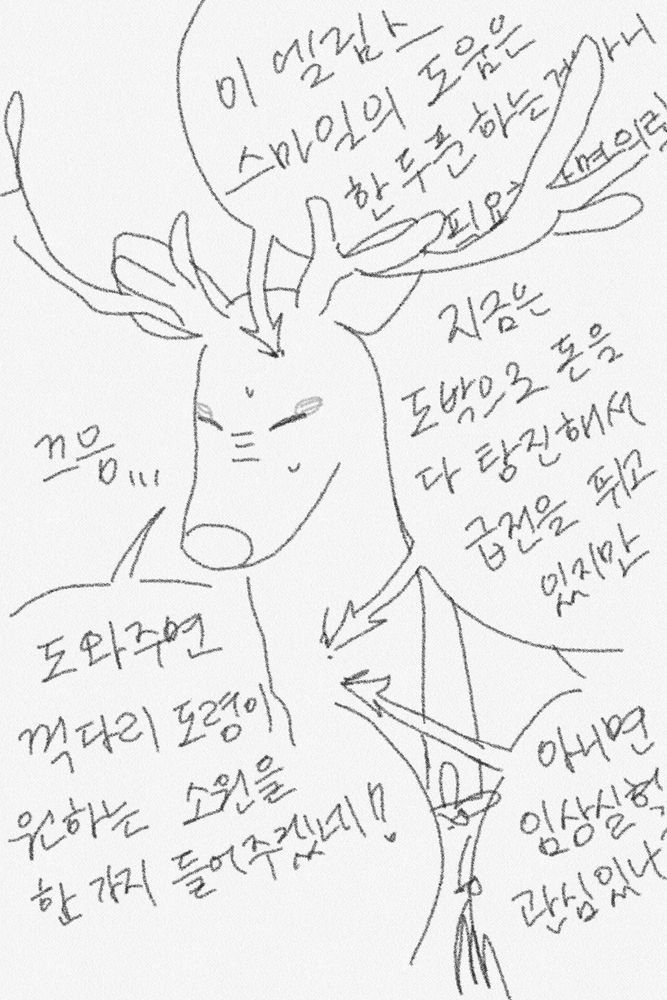 이 엘림스
스마일의 도움은
한 두푼 하는게 아니
필요
사면의뢰
지금은
도박으로 돈을
다 탕진해서
급전을 뛰고
있지만
끄음...
도와주면
꺽다리 도령이
원하는 소원을
한 가지 들어주겠네!
아니면
임상실험
관심있나